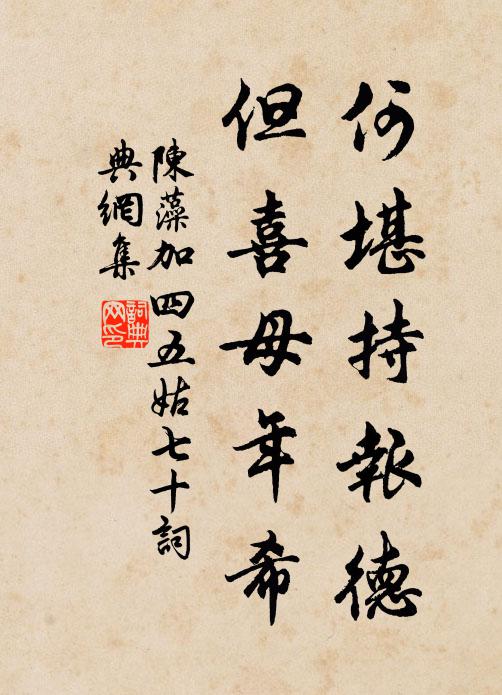 何堪持報德
但喜母年希
陳藻加四五姑七十詞
典網集
詞典
网印